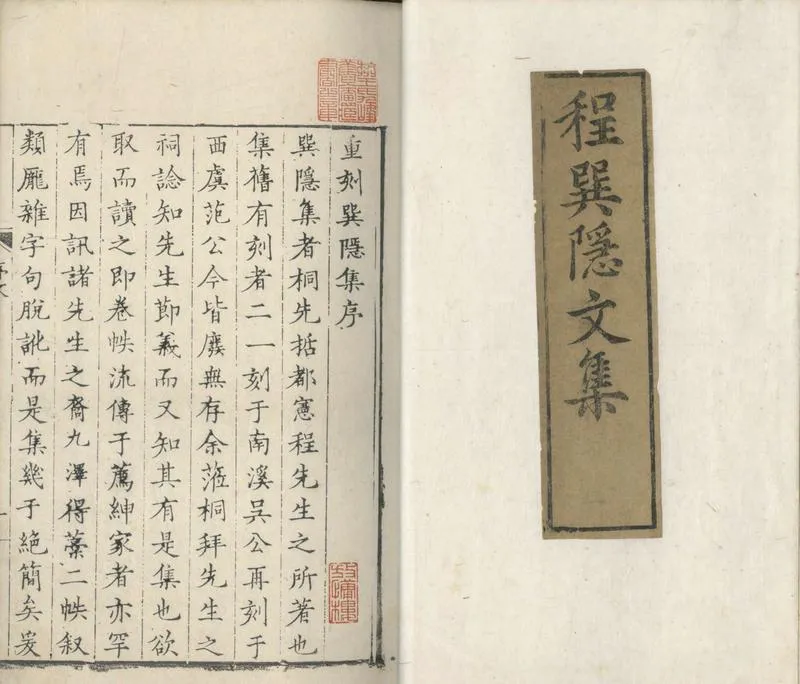 程巽隱文集
重刻巽隱集序
巽隱集者桐先哲都憲程先生之所著也
集舊有刻者二一刻于南溪吳公再刻于
西虞范公今皆廢無存余蒞桐拜先生之
祠諗知先生節義而又知其有是集也欲
取而讀之即卷帙流傳于薦紳家者亦罕
有焉因訊諸先生之裔九澤得藁二帙叙
類厖雜字句脫訛而是集幾于絕簡矣爰